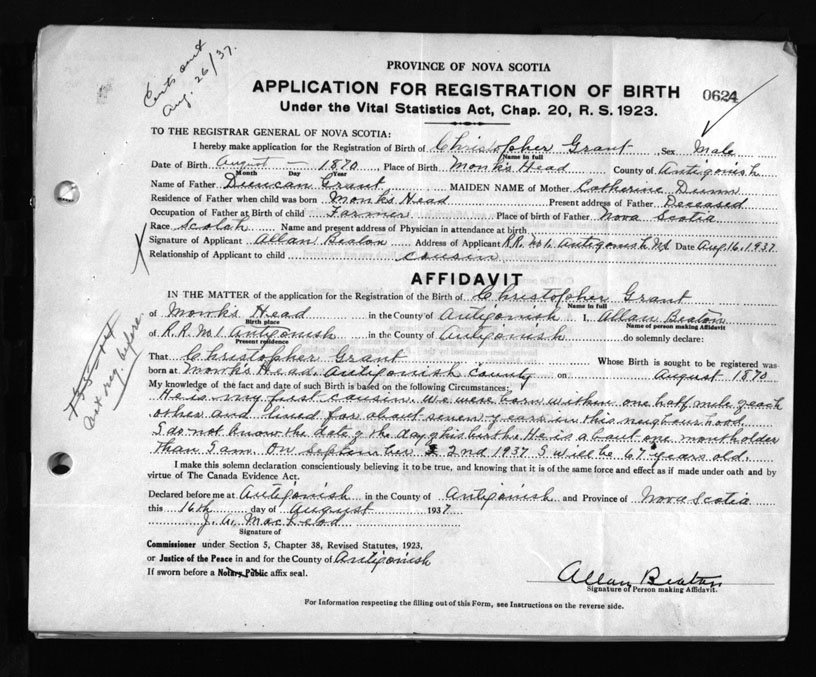 Certs sent
Aug. 26/37.
PROVINCE OF NOVA SCOTIA
APPLICATION FOR REGISTRATION OF BIRTH
0624
Under the Vital Statistics Act, Chap. 20, R. S. 1923.
TO THE REGISTRAR GENERAL OF NOVA SCOTIA:
I hereby make application for the Registration of Birth of Christopher Grant Sex Male
Name in full
Date of Birth August — 1870 Place of Birth Monk's Head County of Antigonish
Month Day Year
Name of Father Duncan Grant MAIDEN NAME of Mother Catherine Dunn
Residence of Father when child was born Monk's Head Present address of Father Deceased
Occupation of Father at Birth of child Farmer Place of birth of Father Nova Scotia
Race Scotch Name and present address of Physician in attendance at birth
Signature of Applicant Allan Beaton Address of Applicant R.R. No 1. Antigonish NS Date Aug. 16. 1937
Relationship of Applicant to child cousin
AFFIDAVIT
IN THE MATTER of the application for the Registration of the Birth of Christopher Grant
Name in full
of Monk's Head in the County of Antigonish I, Allan Beaton
Birth place Name of person making Affidavit
of R.R. No 1 Antigonish in the County of Antigonish do solemnly declare:
Present residence
not reg. before
That Christopher Grant Whose Birth is sought to be registered was
born at Monk's Head, Antigonish County on August 1870
My knowledge of the fact and date of such Birth is based on the following Circumstances:
He is my first cousin. We were born within one half mile of each
other and lived for about seven years in this neighbourhood.
I do not know the date of the day of his birth. He is about one month older
than I am. On September 2nd 1937 I will be 67 years old.
I make this solemn declaration conscientiously believing it to be true, and knowing that it is of the same force and effect as if made under oath and by
virtue of The Canada Evidence Act.
Declared before me at Antigonish in the County of Antigonish and Province of Nova Scotia
this 16th day of August 1937
MacLeod
Signature of
Commissioner under Section 5, Chapter 38, Revised Statutes, 1923,
or Justice of the Peace in and for the County of Antigonish
If sworn before a Notary Public affix seal.
Allan Beaton
Signature of Person making Affidavit.
For Information respecting the filling out of this Form, see Instructions on the reverse side.